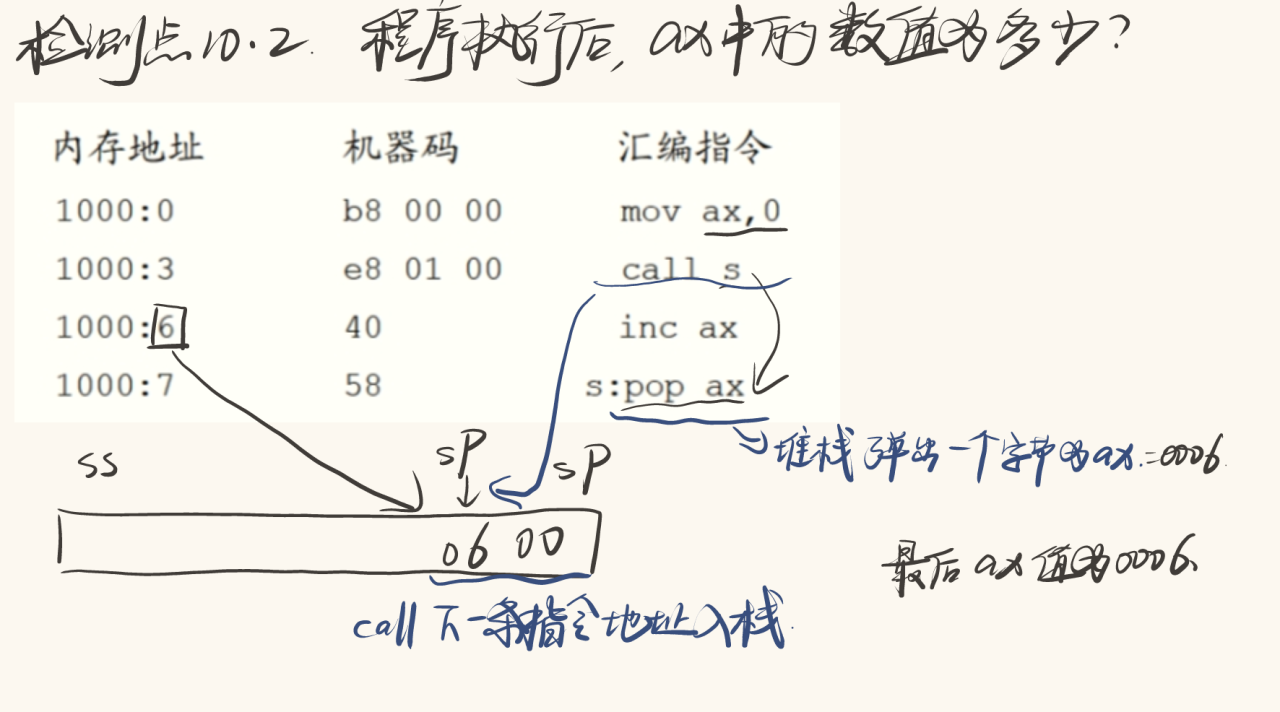 检测点10.2. 程序执行后, ax中的数值为多少?
内存地址 机器码 汇编指令
1000:0 b8 00 00 mov ax,0
1000:3 e8 01 00 call s
1000:6 40 inc ax
1000:7 58 s:pop ax
堆栈弹出一个字节为ax.=0006.
ss sP sP
06 00
最后ax值为0006.
call 下一条指令地址入栈.